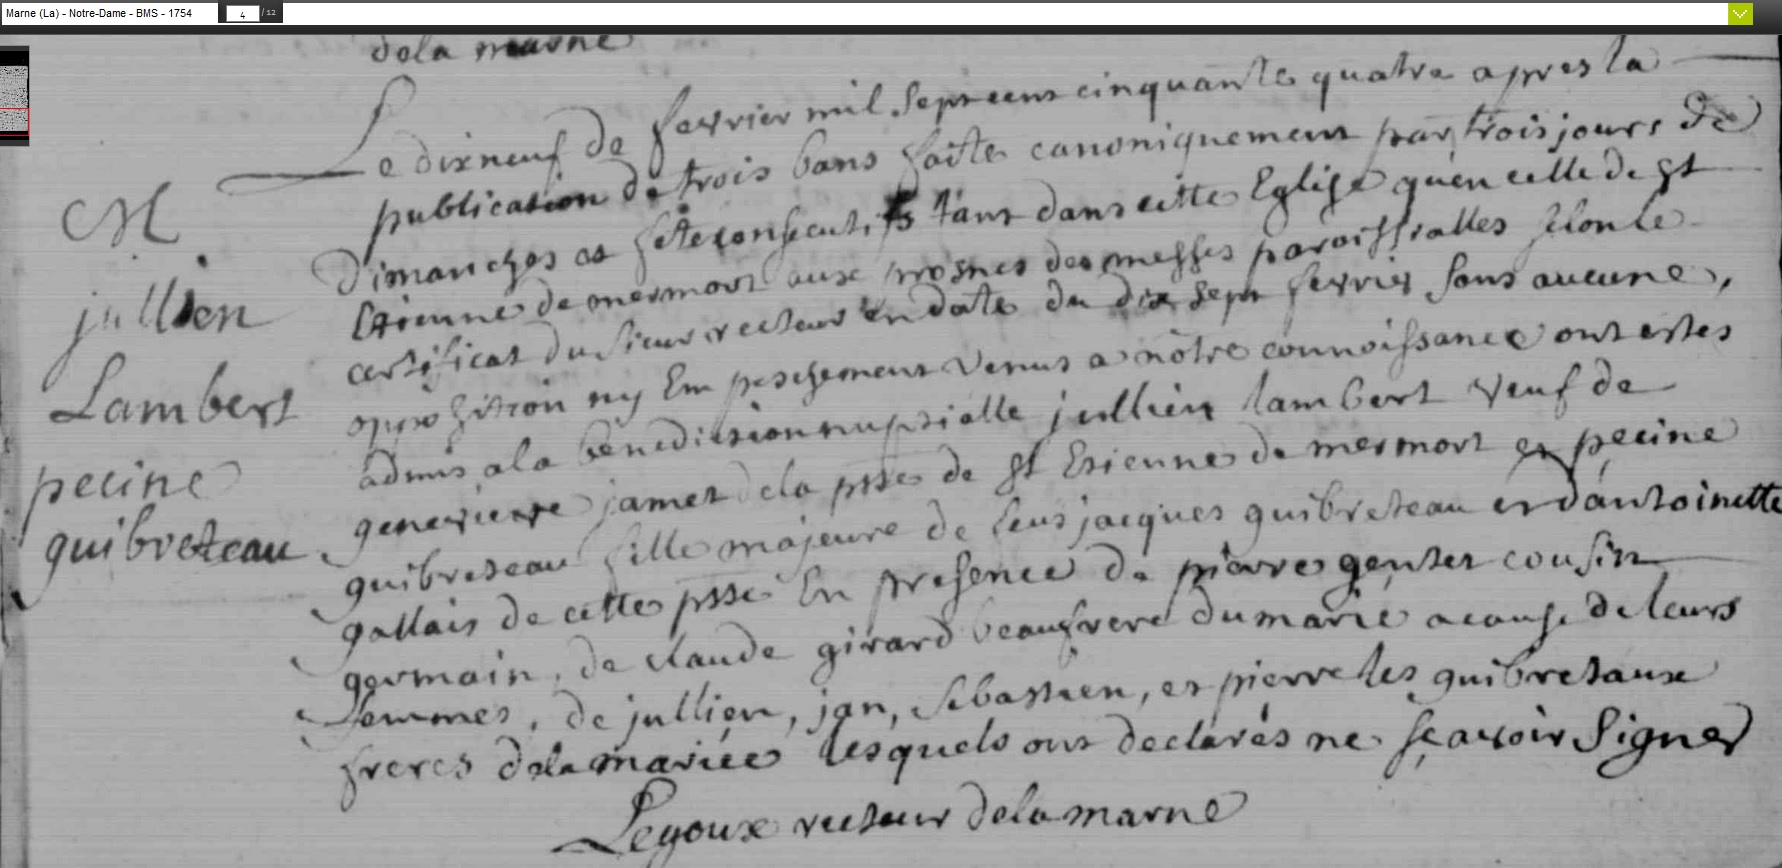 Marne (La) - Notre-Dame - BMS - 1754
4 / 12
dela marne
Le dixneuf de fevrier mil sept cent cinquante quatre apres la
publication de trois bans faitte canoniquement par trois jours de
Dimanches et fête consecutifs tant dans cette Eglise qu'en celle de st
Etienne de mermort aux prosnes des messes paroissialles selon le
certificat du sieur recteur en date du dix sept fevrier sans aucune
opposition ny Empeschement venus a nôtre connoissance ont estes
admis a la benediction nuptialle jullien lambert veuf de
genevieve jamet de la psse de st Etienne de mermort et pecine
quibreteau fille majeure de feus jacques quibreteau et dantoinette
gallais de cette psse En presence de pierre gentet cousin
germain, de claude girard beaufrere du marié a cause de leurs
femmes, de jullien, jan, sebastien, et pierre les quibretaux
freres de la mariée lesquels ont declarés ne sçavoir Signer
Legoux recteur dela marne
M
jullien
Lambert
pecine
quibreteau